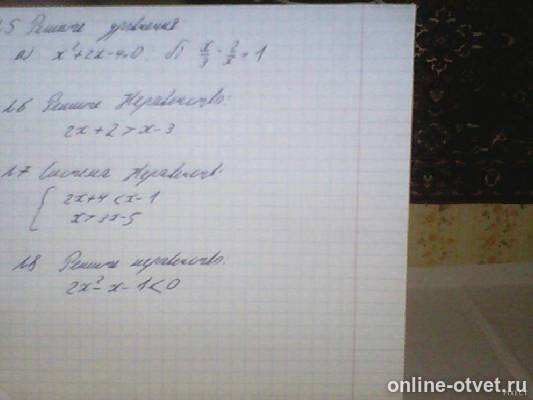 25 Решите уравнения
а) x²+2x-4=0; б) x/3 - 2/x = 1
26 Решите Неравенство:
2x+2>x-3
27 Система Неравенств:
2x+4<x-1
x>3x-5
28 Решите неравенство:
2x²-x-1<0
online-otvet.ru